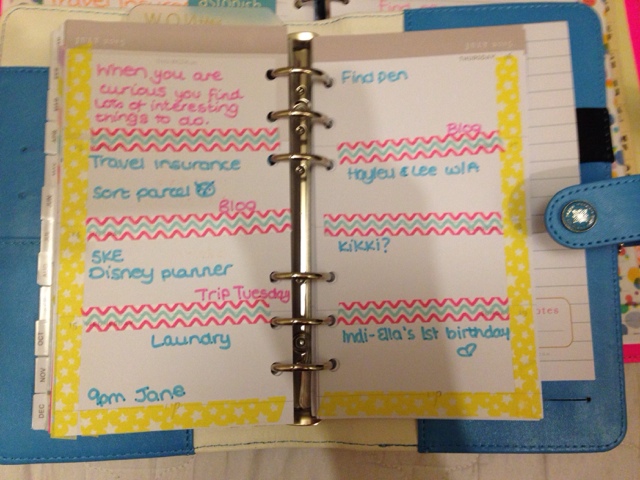 When you are
curious you find
lots of interesting
things to do.
Travel insurance
Sort parcel
Blog
5KE
Disney planner
Trip Tuesday
Laundry
9pm Jane
THURSDAY
Find pen
Blog
Hayley & Lee w/A
Kikki?
Indi-Ella's 1st birthday
notes
OCT
NOV
DEC